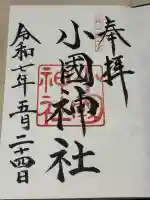 奉拝
小國神社
令和七年五月二十四日